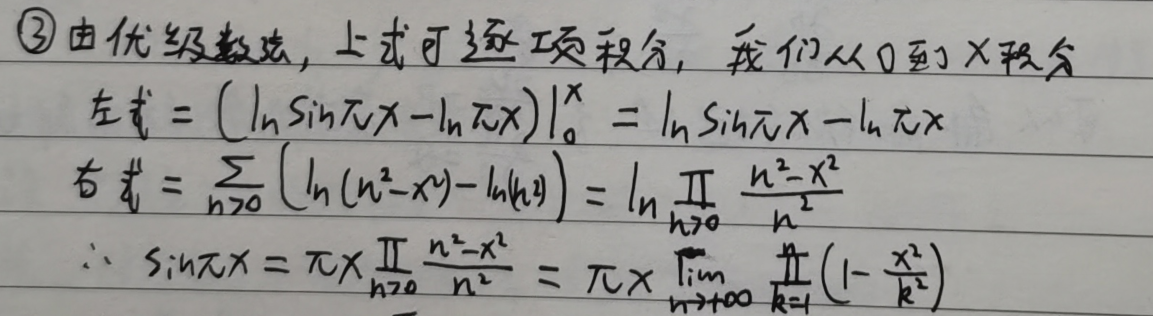 ③由优级数法,上式可逐项积分,我们从0到x积分
左式 = (ln sinπx − ln πx)|₀ˣ = ln sinπx − ln πx
右式 = ∑_{n>0} (ln(n²−x²) − ln(n²)) = ln ∏_{n>0} (n²−x²)/n²
∴ sinπx = πx ∏_{n>0} (n²−x²)/n² = πx lim_{n→+∞} ∏_{k=1}^{n} (1 − x²/k²)